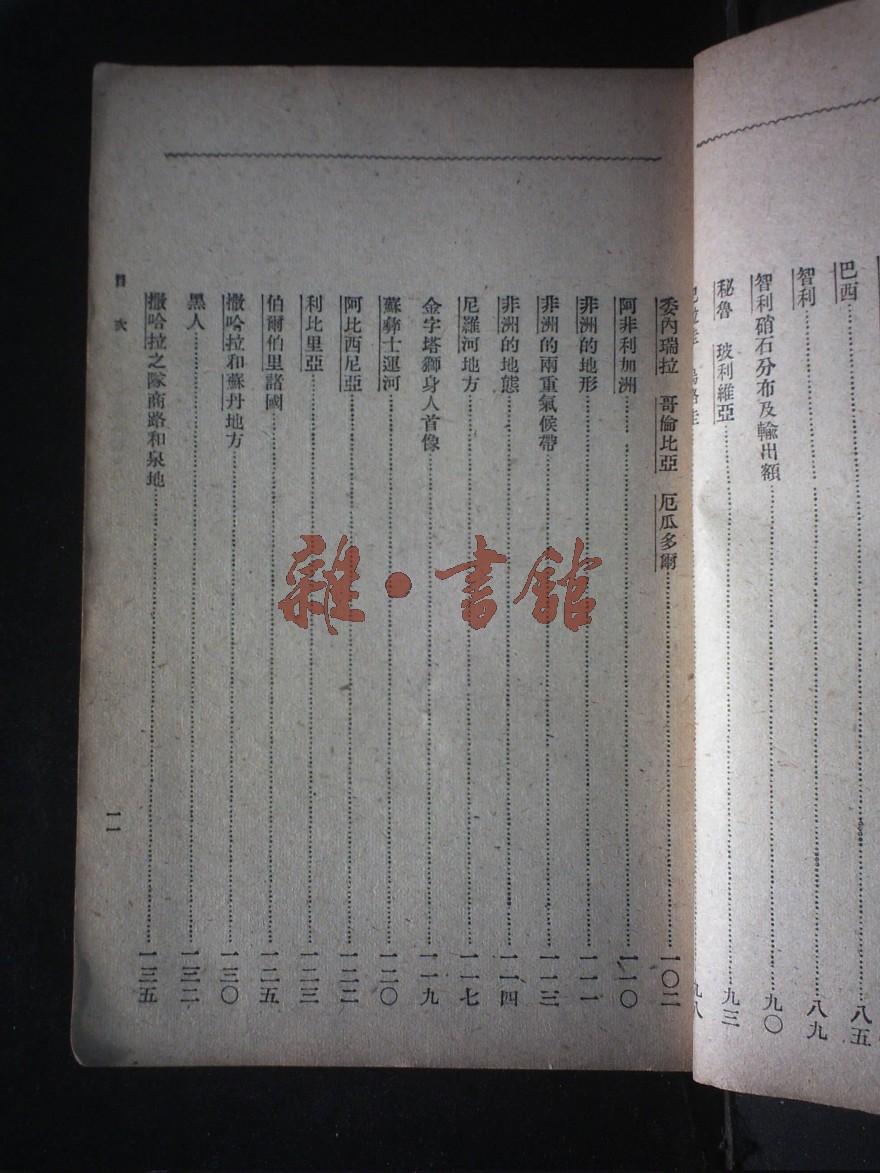 巴西……八五
智利……八九
智利硝石分布及輸出額……九〇
秘魯 玻利維亞……九三
九八
委內瑞拉 哥倫比亞 厄瓜多爾……一〇二
阿非利加洲……一一〇
非洲的地形……一一一
非洲的兩重氣候帶……一一三
非洲的地態……一一四
尼羅河地方……一一七
金字塔獅身人首像……一一九
蘇彝士運河……一二〇
阿比西尼亞……一二二
利比里亞……一二三
伯爾伯里諸國……一二五
撒哈拉和蘇丹地方……一三〇
黑人……一三二
撒哈拉之隊商路和泉地……一三五
目次
一一
雜·書館